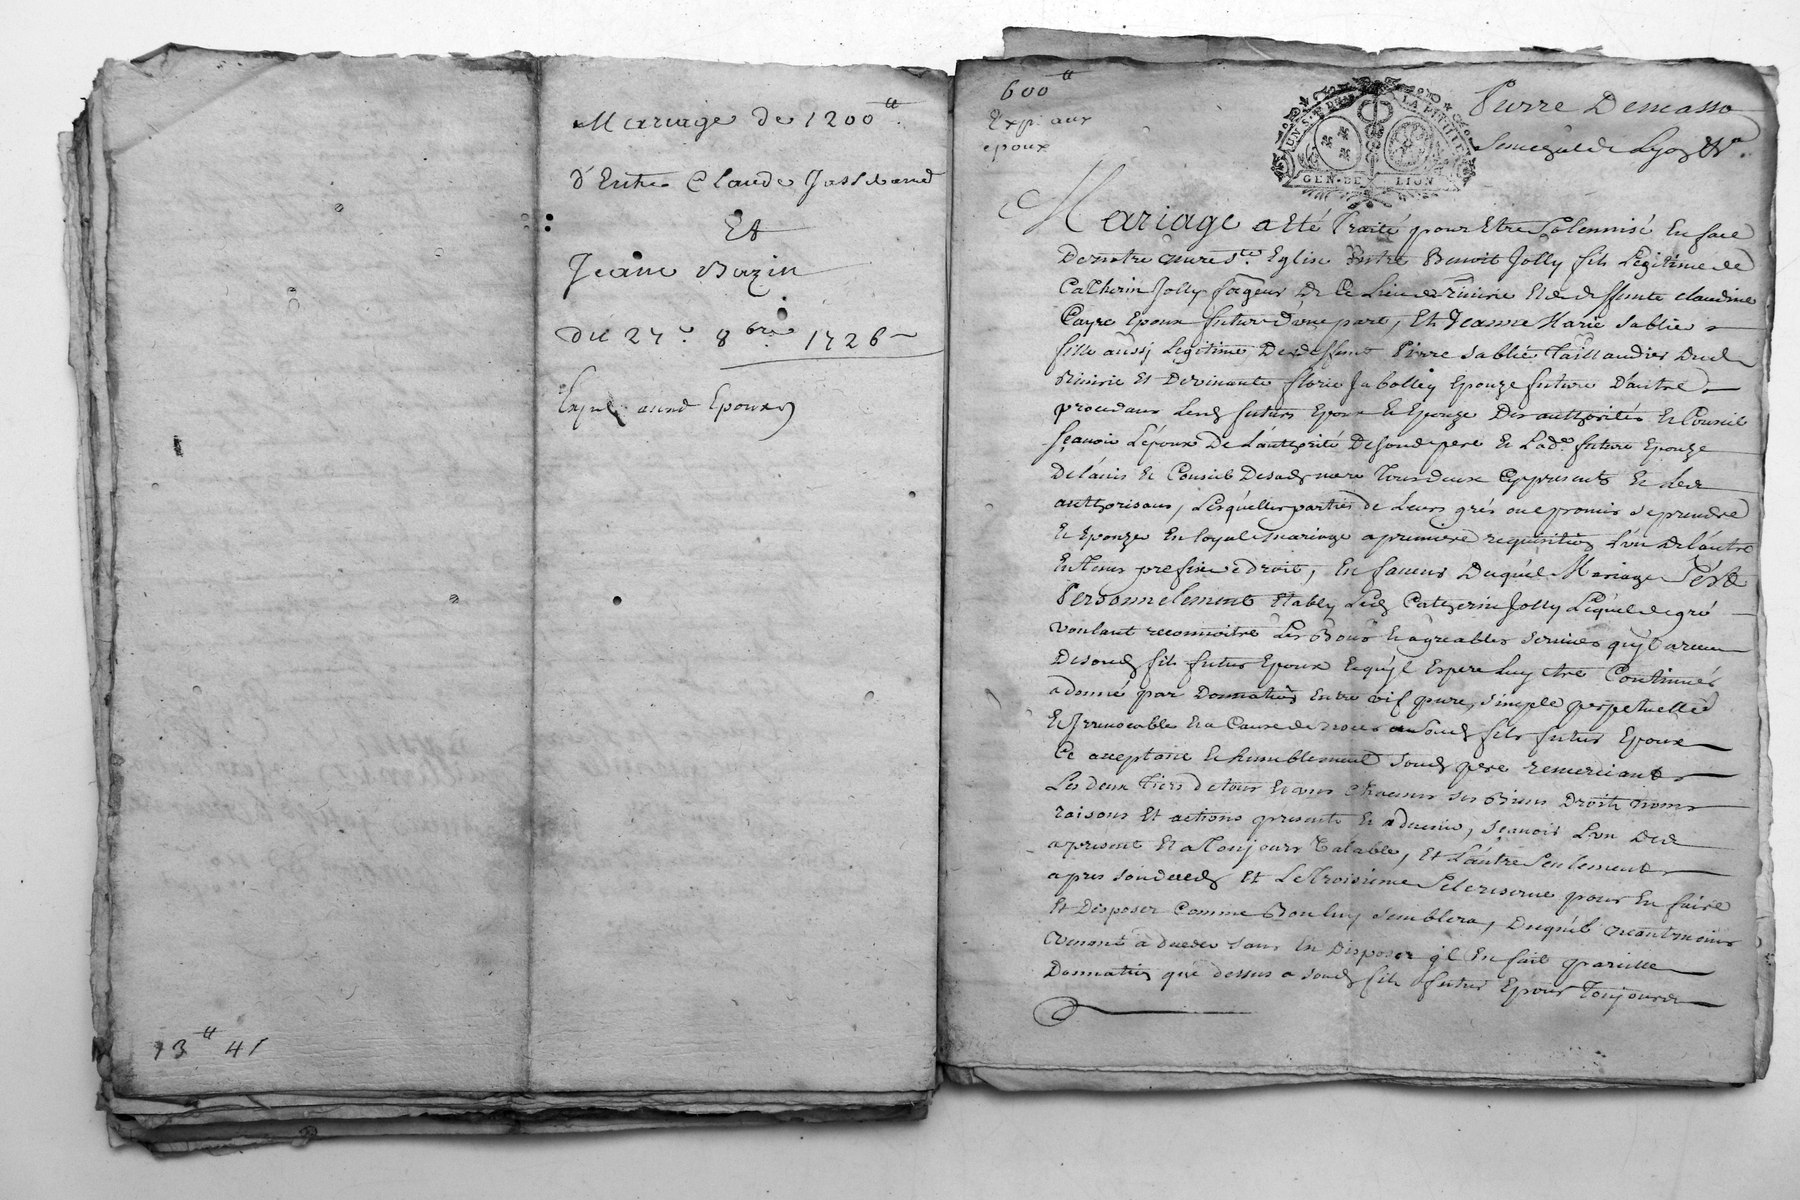 Mariage de 1200 tt
d'Entre Claude
Et
Jeane Bazin
du 27e 8bre 1726
Expé aux Epoux
13 tt 4 s
600 tt
Exp: aux
epoux
UN S. 8 D.rs LA PETITE F.
GEN. DE LION
Pierre Demasso
Senechal de Lyon
Mariage a Eté Traité pour Etre Solemnisé En face
De notre mere Ste. Eglise Entre Benoit Jolly fils Legitime de
Catherin Jolly De Ce Lieu de Riuirie Et de deffunte Claudine
Cayre Epoux futur d'une part, Et Jeanne Marie Sablié
fille aussj Legitime De deffunt Pierre Sablié Taillandier Dud
Riuirie Et De viuante florie Jabolley Epouze future D'autre
procedans Lesd futurs Epoux Et Epouze Des authorités Et Conseil
sçauoir L'époux De L'authorité De sond pere Et Lade. future Epouze
De l'auis Et Conseil De sad mere Tous deux Cy presents Et Les
authorisans, Lesquelles parties de Leurs grés ont promis se prendre
Et Epouzer En loyal mariage a premiere requisition L'un De l'autre
En Tems prefix de droit, En faueur Duquel Mariage s'est
Personnelement Etably Led Catherin Jolly Lequel de gré
voulant reconnoitre Les Bons Et agreables seruices qu'jl a receu
De sond fils futur Epoux Et qu'jl Espere Luy etre Continués
a donné par Donnation Entre vif pure, simple perpetuelle
Et Jrreuocable Et a Cause de noces a sond fils futur Epoux
Ce acceptant Et humblement sond pere remerciant
Les deux Tiers de tous Et uns Chacuns ses Biens Droits noms
raisons Et actions presents Et aduenir, sçauoir L'un Des
apresent Et a Toujours Valable, Et L'autre Seulement
apres son deced Et Le Troisieme Se le reserue pour En faire
Et Disposer Comme Bon luy semblera, Duquel neantmoins
venant à deceder sans En Disposer jl En fait pareille
Donnation que dessus a sond fils futur Epoux Toujours